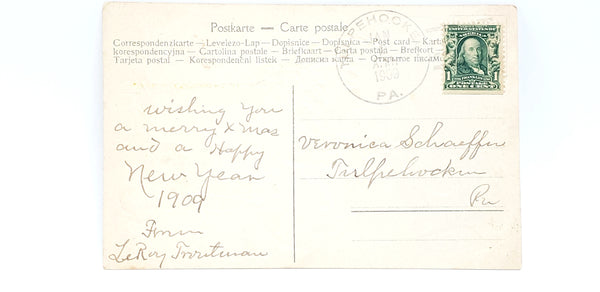 Postkarte — Carte postale
Correspondenzkarte — Levelezo-Lap — Dopisnice — Dopisnica — Post card — Karta
korespondencyjna — Cartolina postale — Briefkaart — Carta postala — Brefkort
Tarjeta postal — Korespondenčni listek — Дописна карта — Открытое письмо
TULPEHOCKEN
1909
PA.
1 1
ONE CENT
wishing you
a merry xmas
and a Happy
New Year
1909
From
LeRoy Troutman
Veronica Schaeffer
Tulpehocken
Pa